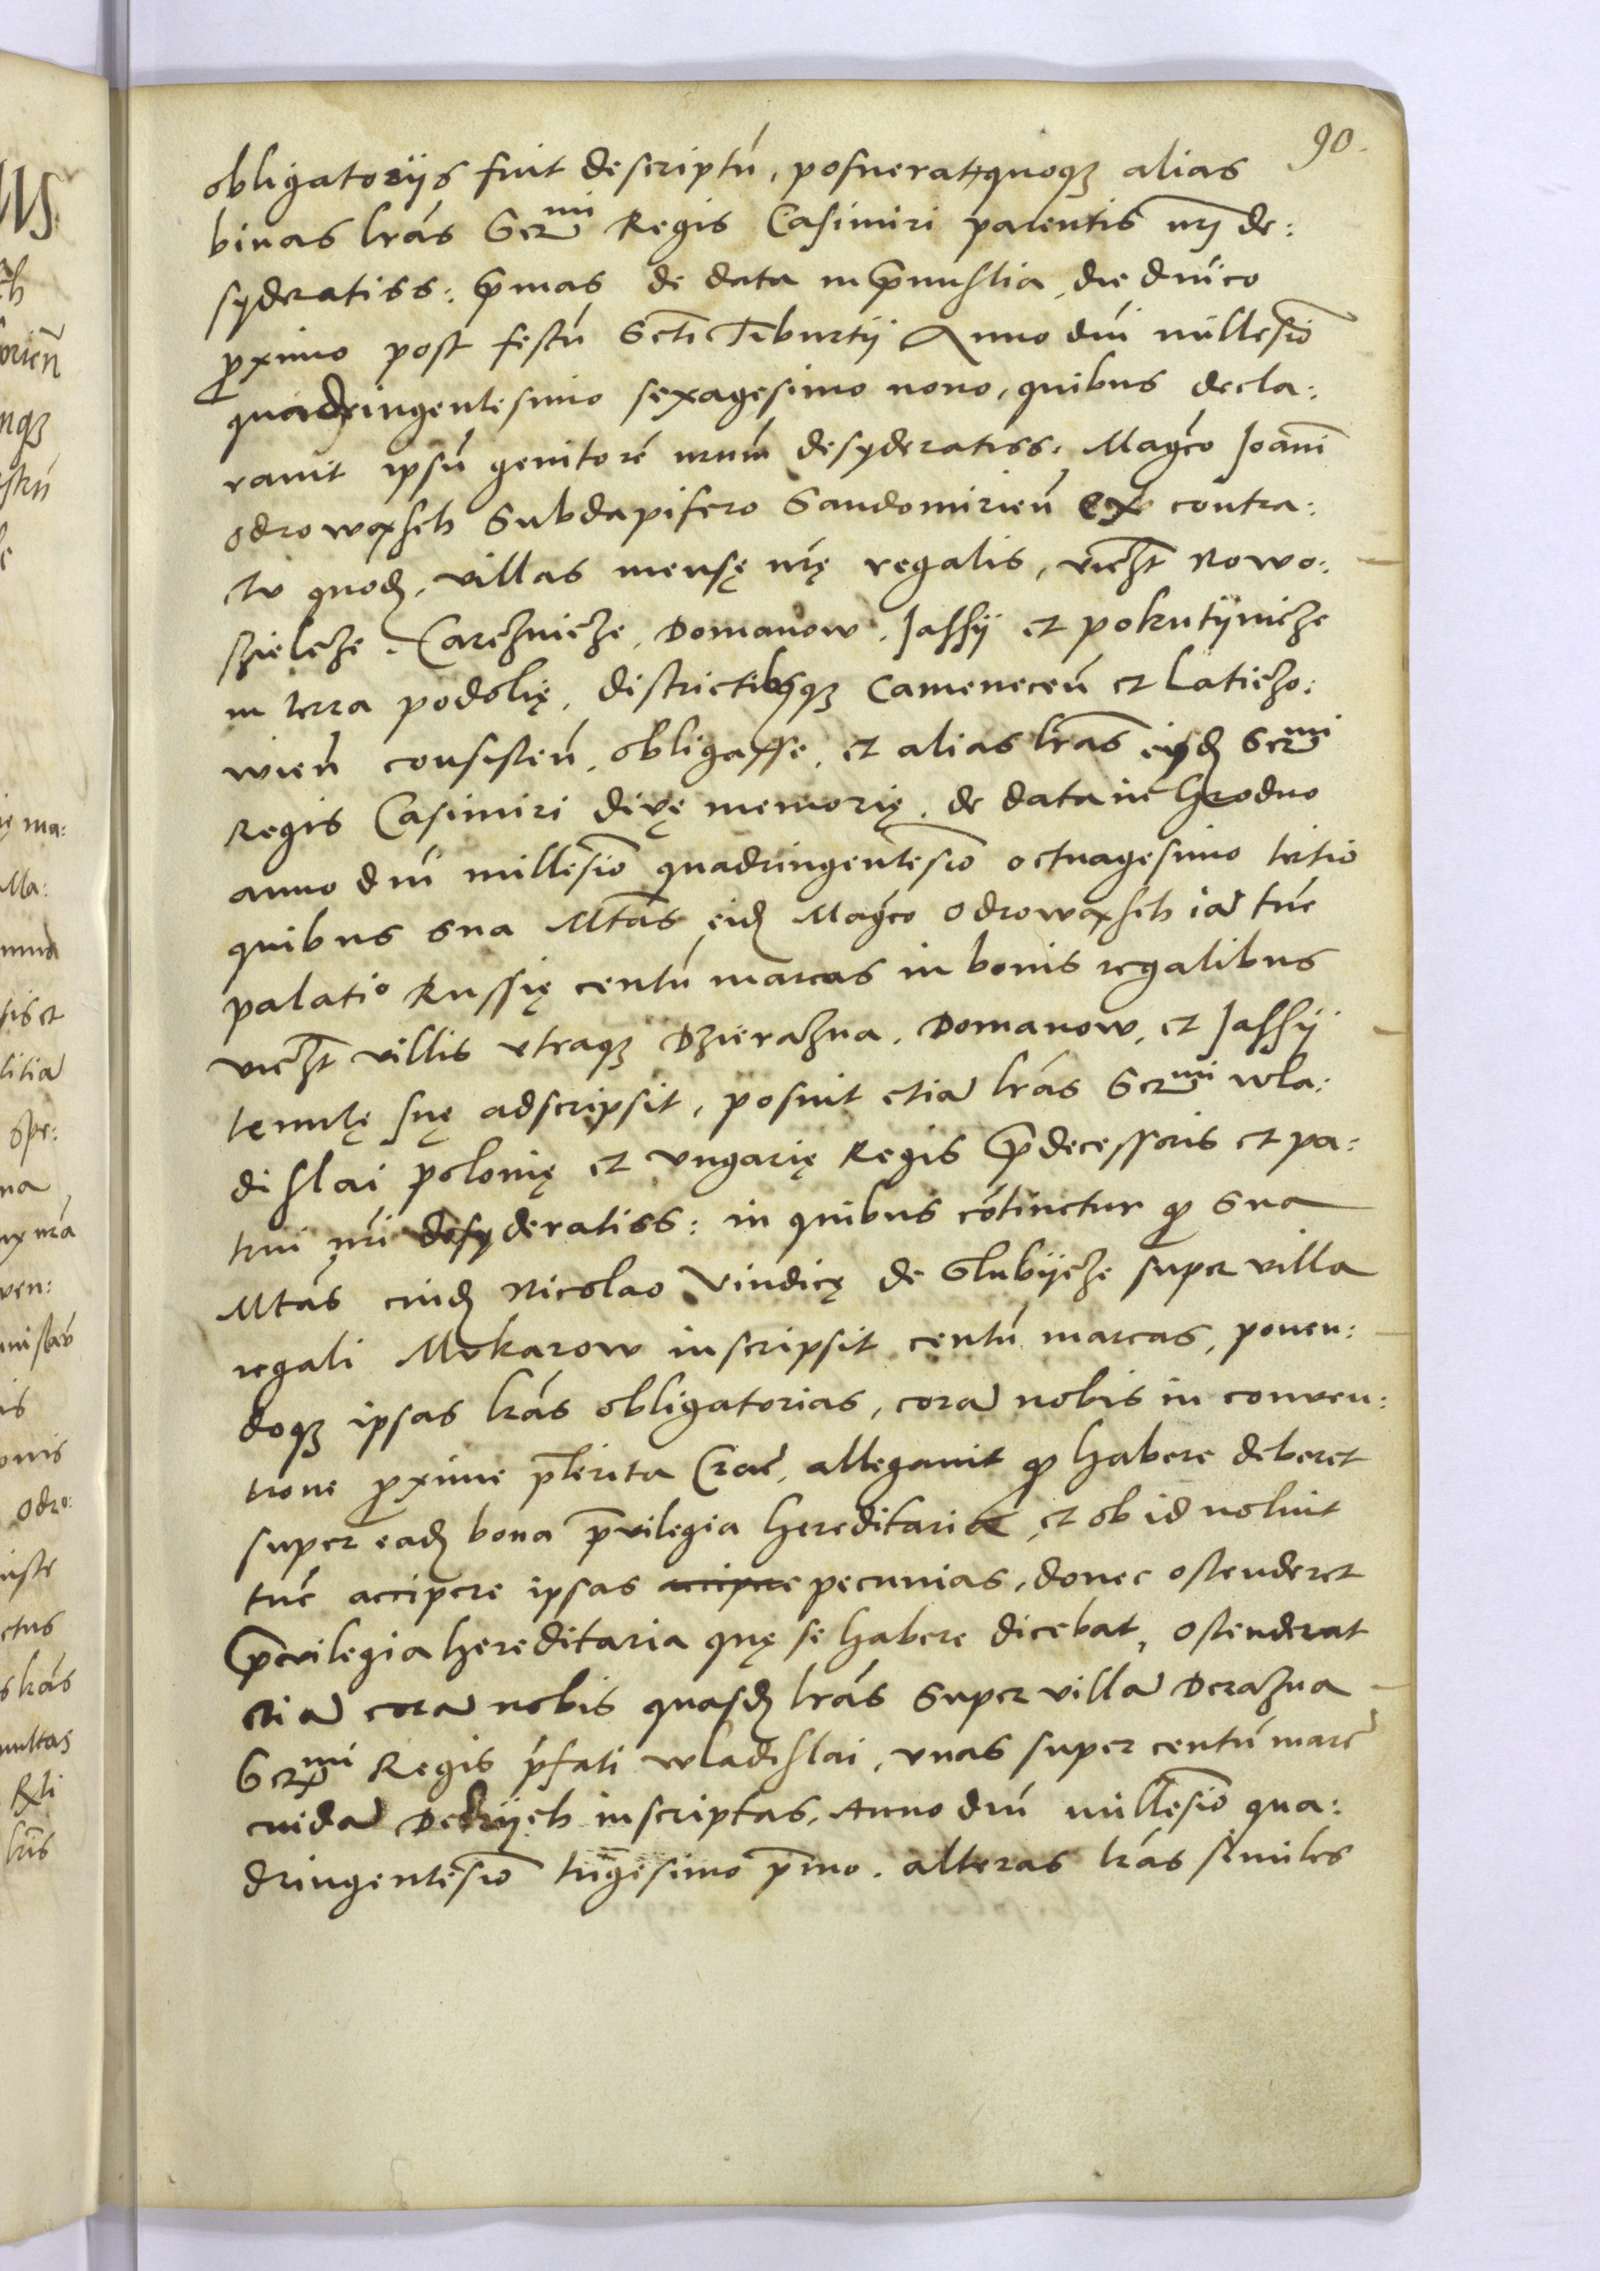 90.
obligatoriis fuit descriptū, posuerat quoqȝ alias
binas lrãs Serᵐⁱ Regis Casimiri parentis nrj de:
syderatiss: p̄mas de data in p̄mislia, die dñico
ꝓximo post festū Scti Tiburtij Anno dñi millesiō
quadringentesimo sexagesimo nono, quibus decla:
rauit ipsū genitorē nrum desyderatiss: Magco Joañi
Odrowąsch Subdapifero Sandomirieñ ex contra:
ctu quoḍ, villas mensę nrę regalis, viczt Nowo:
szielcze. Carczmicze, Domanow, Jassij et Pokutijnicze
in terra podolię, districtibusqȝ Cameneceñ et Laticzo:
wieñ consisteñ, obligasse, et alias lrãs eiusḍ Serᵐⁱ
Regis Casimiri divę memorię, de data in Grodno
anno dñi millesiō quadringentesiō octuagesimo tertio
quibus sua Mtãs eiḍ Magco Odrowąsch iã tūc
palatiº Russię centū marcas in bonis regalibus
viczt villis vtraqȝ Dzierazna, Domanow, et Jassij
tenutę suę adscripsit, posuit etiã lrãs Serᵐⁱ wla:
dislai polonię et vngarię Regis p̄decessoris et pa:
trui nri desyderatiss: in quibus cōtinetur ꝙ sua
Mtãs cuiḍ Nicolao Vindicę de Glubijcze super villa
regali Mokarow inscripsit centū marcas, ponen:
doqȝ ipsas lrãs obligatorias, corã nobis in conuen:
tione ꝓxime p̄terita Crac̄, allegauit ꝙ habere deberet
super eaḍ bona p̄vilegia hereditaria, et ob id noluit
tūc accipere ipsas accipere pecunias, donec ostenderet
p̄vilegia hereditaria quę se habere dicebat, ostenderat
etiã corã nobis quasḍ lrãs super villã Derazna
Serᵐⁱ Regis p̄fati wladislai, vnas super centū marc̄
cuidã Dedrijch inscriptas, Anno dñi millesiō qua:
dringentesiō trigesimo p̄mo. alteras lrãs similes